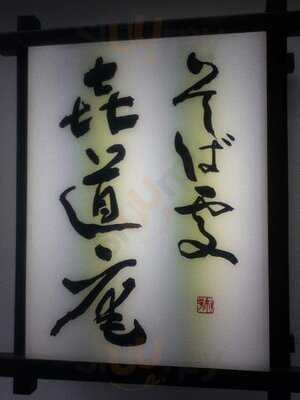 そば処
喜道庵